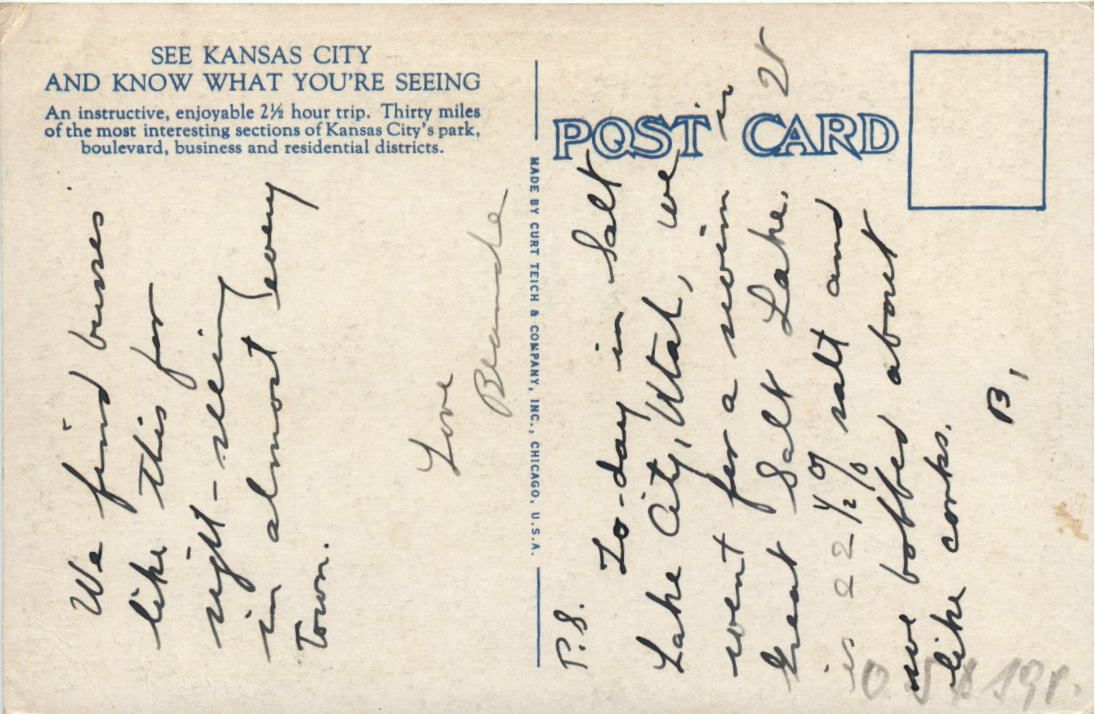 SEE KANSAS CITY
AND KNOW WHAT YOU'RE SEEING
An instructive, enjoyable 2½ hour trip. Thirty miles
of the most interesting sections of Kansas City's park,
boulevard, business and residential districts.
We find busses
like this for
sight-seeing
in almost every
Town.
Love
Blanche
MADE BY CURT TEICH & COMPANY, INC., CHICAGO, U.S.A.
POST CARD
P.S.
To-day in Salt
Lake City, Utah, we
went for a swim in
Great Salt Lake. It
is 22½% salt and
we bobbed about
like corks.
B.